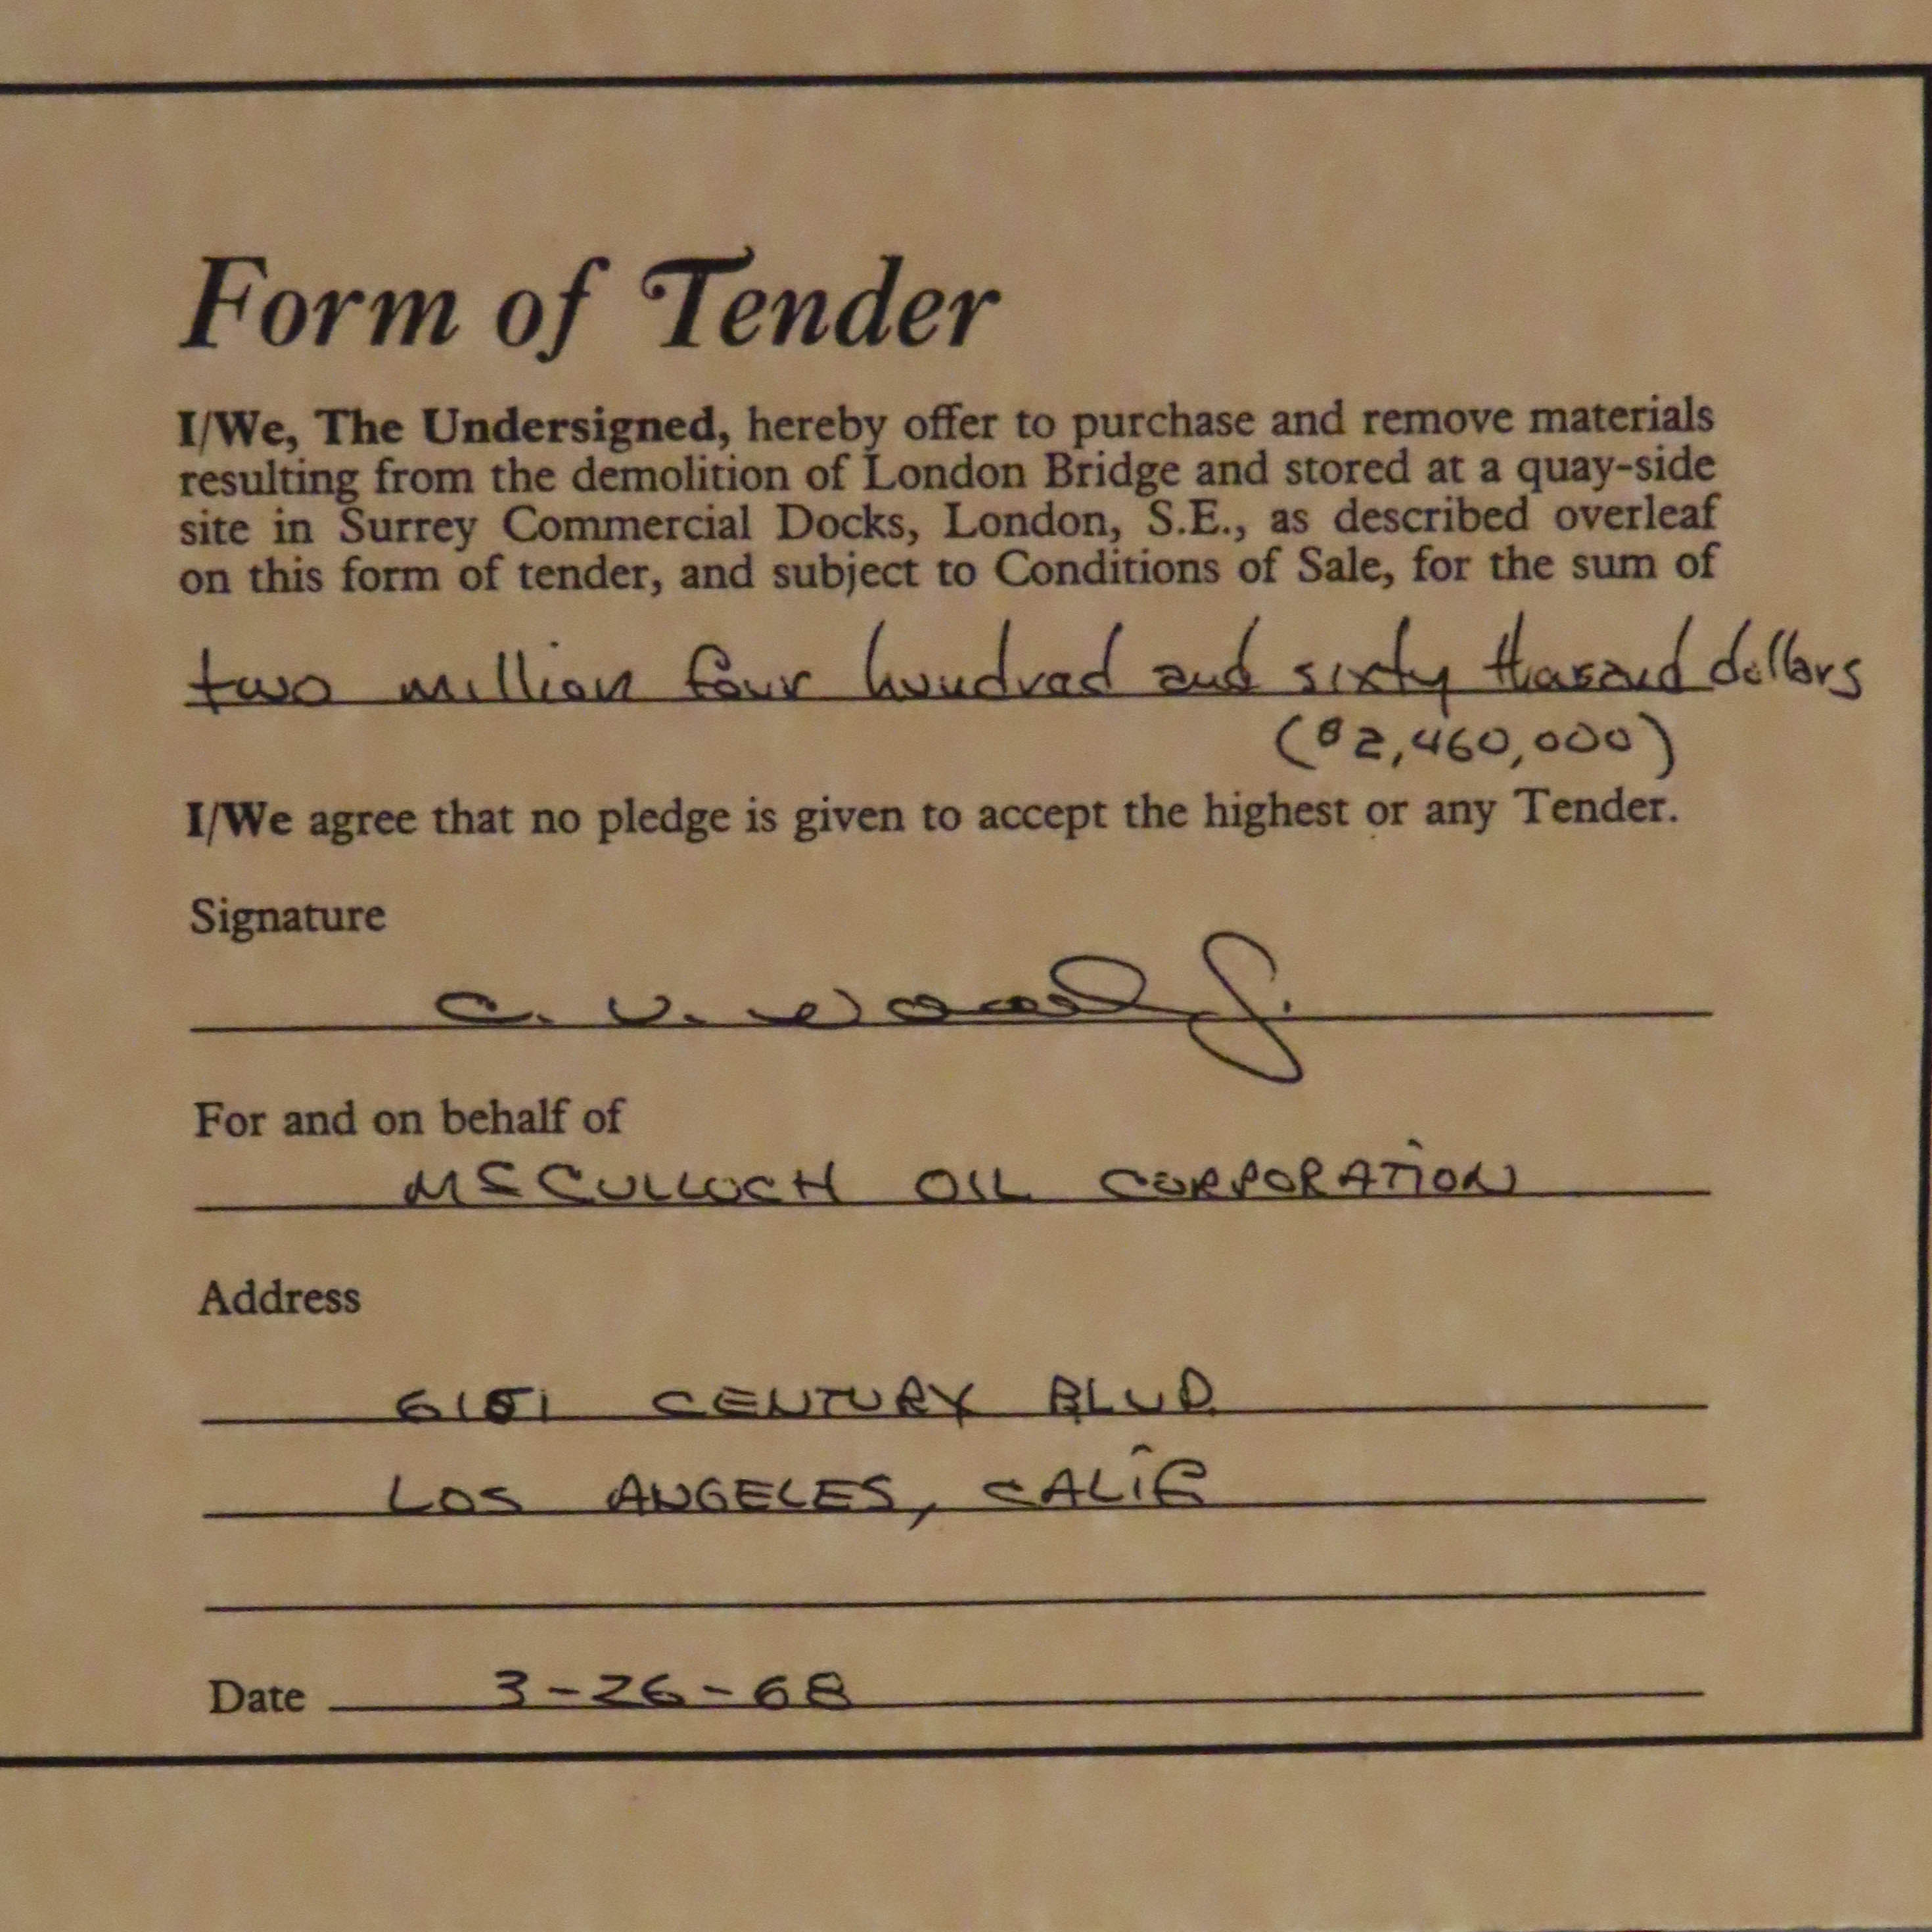 Form of Tender
I/We, The Undersigned, hereby offer to purchase and remove materials
resulting from the demolition of London Bridge and stored at a quay-side
site in Surrey Commercial Docks, London, S.E., as described overleaf
on this form of tender, and subject to Conditions of Sale, for the sum of
two million four hundred and sixty thousand dollars
($2,460,000)
I/We agree that no pledge is given to accept the highest or any Tender.
Signature
C. V. Wood Jr.
For and on behalf of
MCCULLOCH OIL CORPORATION
Address
6151 CENTURY BLVD.
LOS ANGELES, CALIF
Date 3-26-68